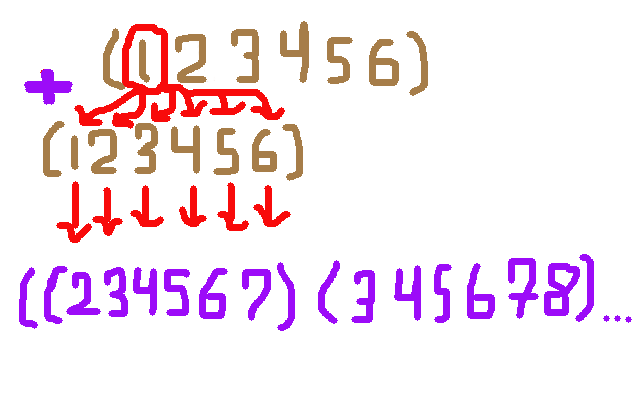 (1 2 3 4 5 6)
+
(1 2 3 4 5 6)
((2 3 4 5 6 7) (3 4 5 6 7 8)...